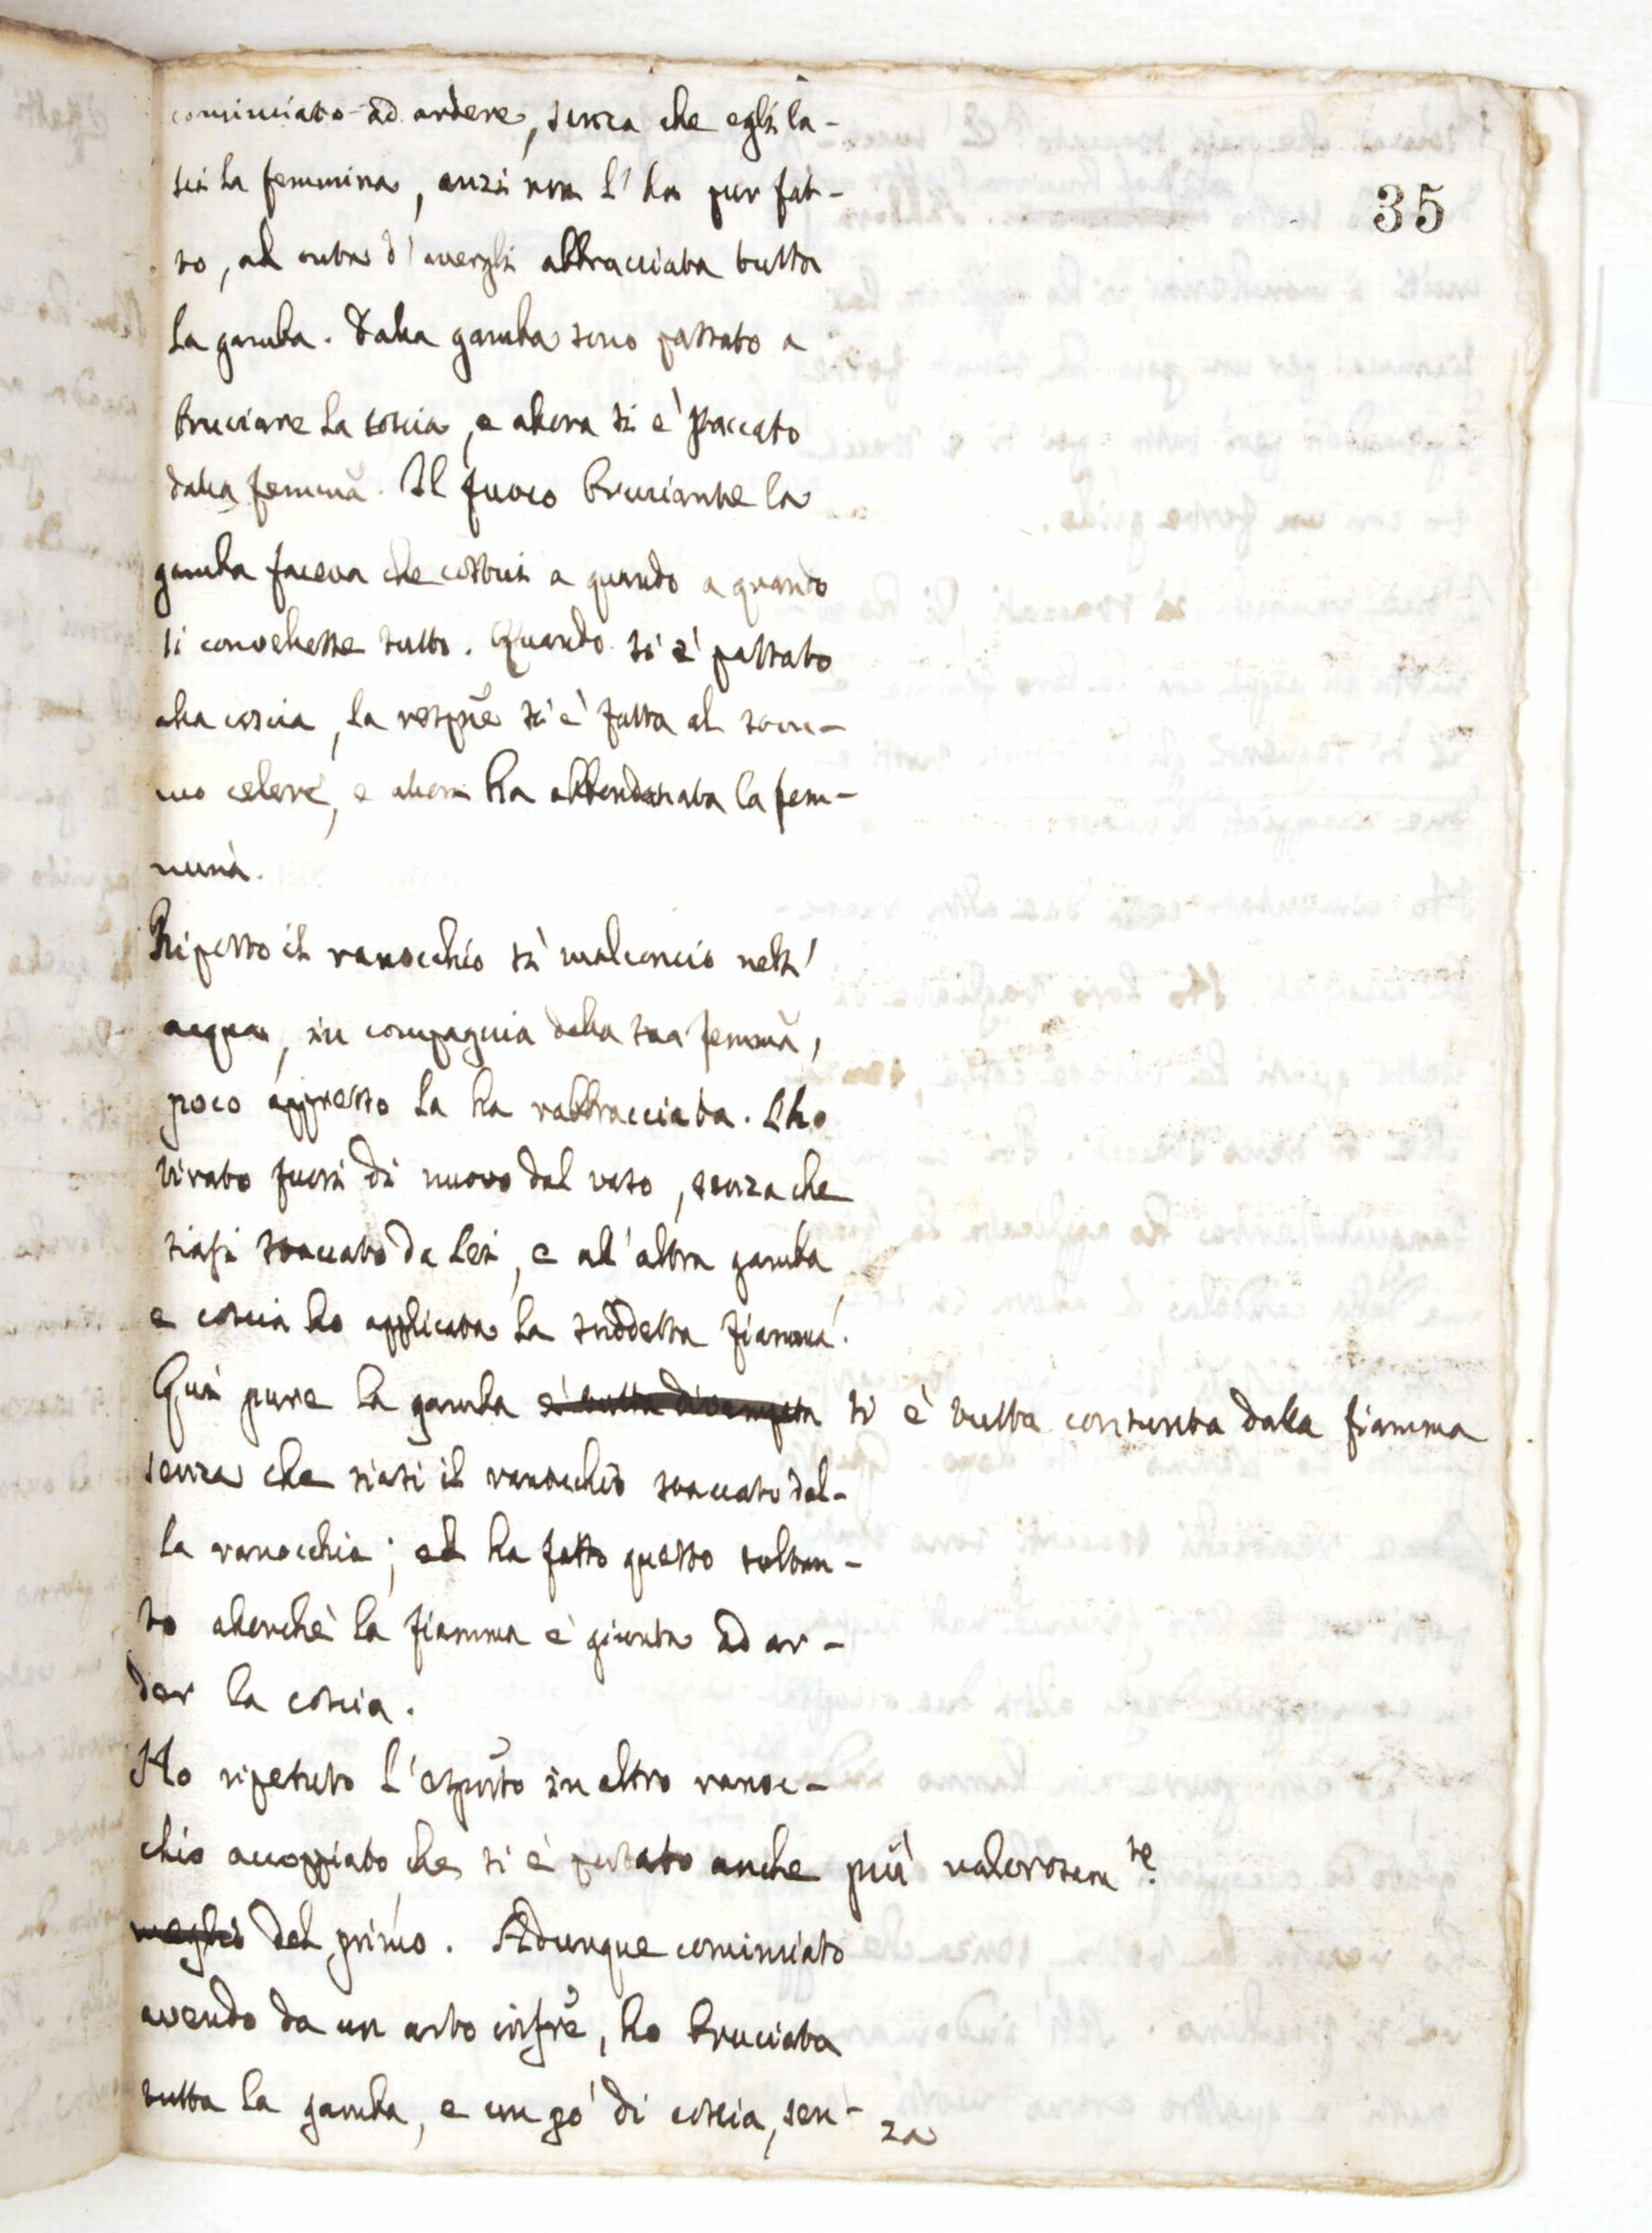 35
cominciato ad ardere, senza che egli la-
sci la femmina, anzi non l'ha pur fat-
to, ad onta d'avergli abbracciata tutta
la gamba. Dalla gamba sono passato a
bruciare la coscia, e allora si è staccato
dalla femmã. Il fuoco bruciante la
gamba faceva che costui a quando a quando
si convellesse tutto. Quando si è passato
alla coscia, la respñe si è fatta al som-
mo celere, e allora ha abbandonata la fem-
mina.
Riposto il ranocchio sì malconcio nell'
acqua, in compagnia della sua femmã,
poco appresso la ha rabbracciata. L'ho
tirato fuori di nuovo dal vaso, senza che
siasi staccato da lei, e all'altra gamba
e coscia ho applicata la suddetta fiamma.
Qui pure la gamba è tutta divampata si è tutta consunta dalla fiamma
senza che siasi il ranocchio staccato dal-
la ranocchia; ed ha fatto questo soltan-
to allorchè la fiamma è giunta ad ar-
der la coscia.
Ho ripetuto l'esperĩto in altro ranoc-
chio accoppiato che si è portato anche più valorosam.te
meglio del primo. Adunque cominciato
avendo da un arto infre, ho bruciata
tutta la gamba, e un po' di coscia, sen-
za